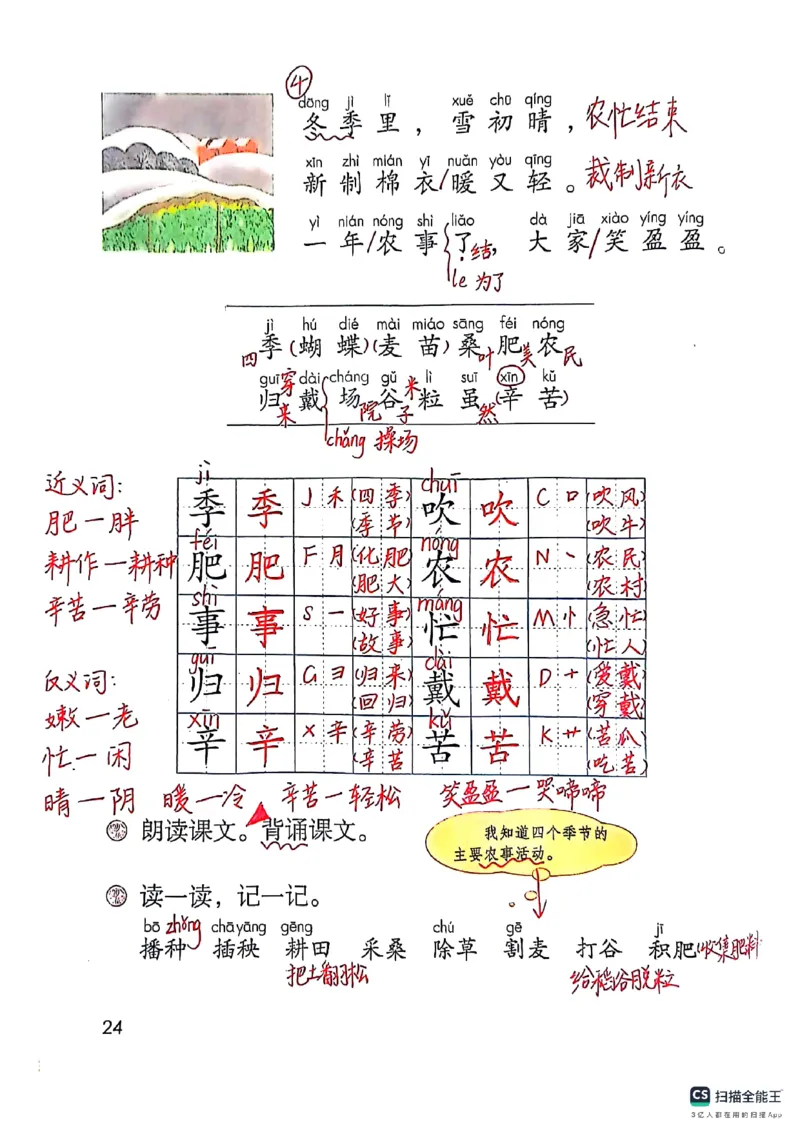 ④
dōng jì lǐ xuě chū qíng
冬季里，雪初晴， 农忙结束
xīn zhì mián yī nuǎn yòu qīng
新制棉衣/暖又轻。 裁制新衣
yì nián nóng shì liǎo dà jiā xiào yíng yíng
一年/农事了， 大家/笑盈盈。
结
le 为了
jì hú dié mài miáo sāng féi nóng
四季(蝴蝶)(麦苗)桑叶肥美农民
guī dài cháng gǔ lì suī xīn kǔ
归来穿戴场院谷子米粒虽然(辛苦)
chǎng 操场
近义词：
肥—胖
耕作—耕种
辛苦—辛劳
反义词：
嫩—老
忙—闲
晴—阴 暖—冷 辛苦—轻松 笑盈盈—哭啼啼
jì chuī
季 季 J 禾 (四季) 吹 吹 C 口 (吹风)
(季节) (吹牛)
féi nóng
肥 肥 F 月 (化肥) 农 农 N 丶 (农民)
(肥大) (农村)
shì máng
事 事 S 一 (好事) 忙 忙 M 忄 (急忙)
(故事) (忙人)
guī dài
归 归 G 彐 (归来) 戴 戴 D 十 (爱戴)
(回归) (穿戴)
xīn kǔ
辛 辛 X 辛 (辛劳) 苦 苦 K 艹 (苦瓜)
(辛苦) (吃苦)
朗读课文。背诵课文。
我知道四个季节的
主要农事活动。
读一读，记一记。
bō zhòng chā yāng gēng chú gē jī
播种 插秧 耕田 采桑 除草 割麦 打谷 积肥(收集肥料)
把土翻松 给稻谷脱粒
24
CS 扫描全能王
3亿人都在用的扫描App